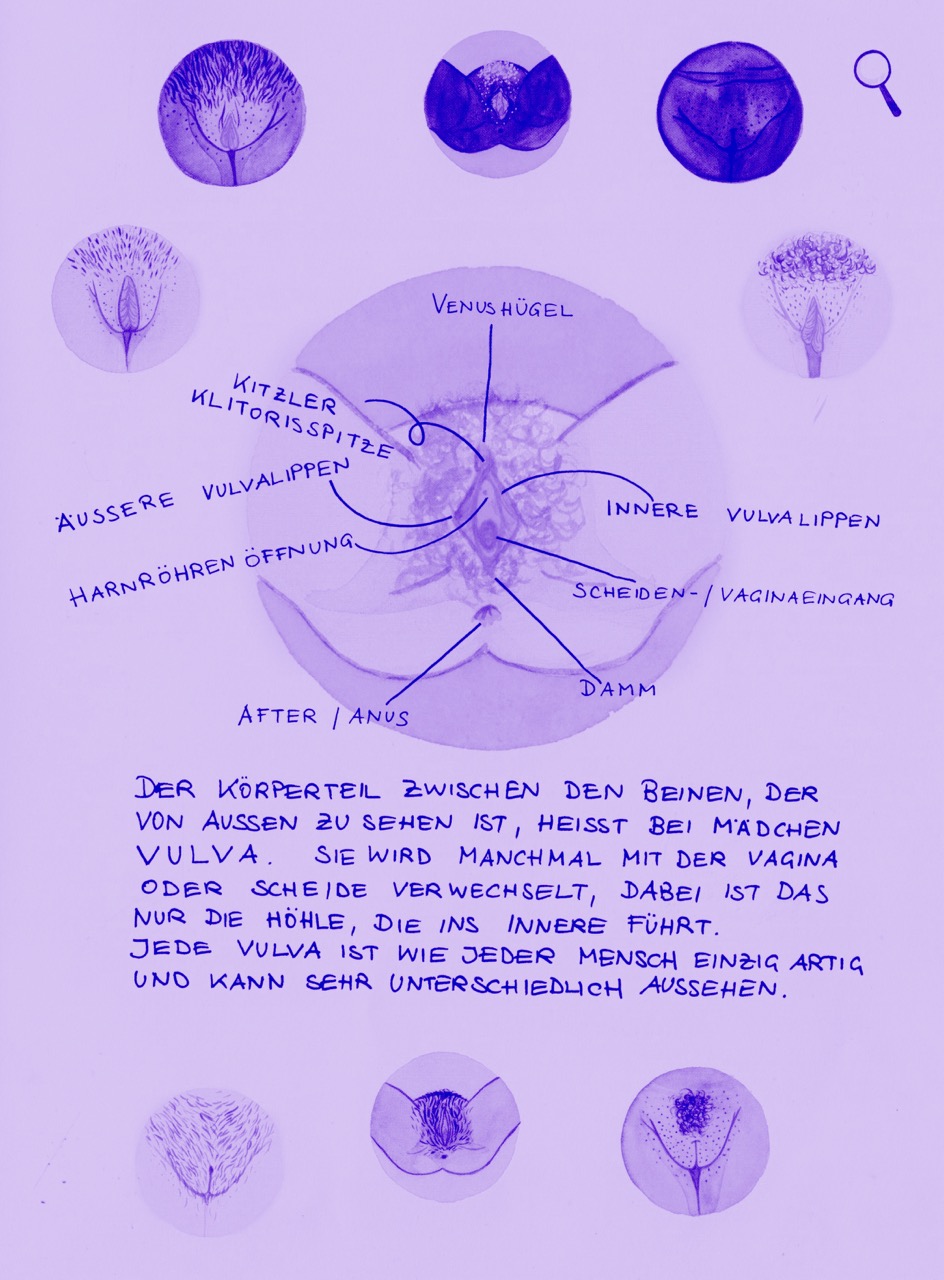 VENUSHÜGEL
KITZLER
KLITORISSPITZE
ÄUSSERE VULVALIPPEN
INNERE VULVALIPPEN
HARNRÖHREN ÖFFNUNG
SCHEIDEN-/VAGINAEINGANG
DAMM
AFTER / ANUS
DER KÖRPERTEIL ZWISCHEN DEN BEINEN, DER
VON AUSSEN ZU SEHEN IST, HEISST BEI MÄDCHEN
VULVA. SIE WIRD MANCHMAL MIT DER VAGINA
ODER SCHEIDE VERWECHSELT, DABEI IST DAS
NUR DIE HÖHLE, DIE INS INNERE FÜHRT.
JEDE VULVA IST WIE JEDER MENSCH EINZIG ARTIG
UND KANN SEHR UNTERSCHIEDLICH AUSSEHEN.